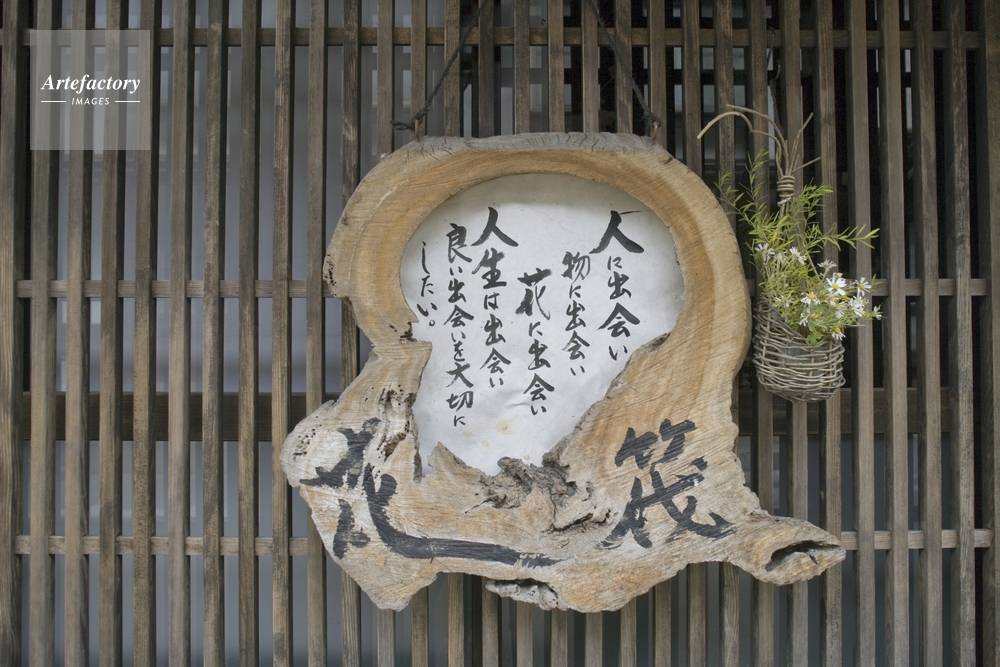 Artefactory
IMAGES
人に出会い
物に出会い
花に出会い
人生は出会い
良い出会いを大切に
したい。
筏
花